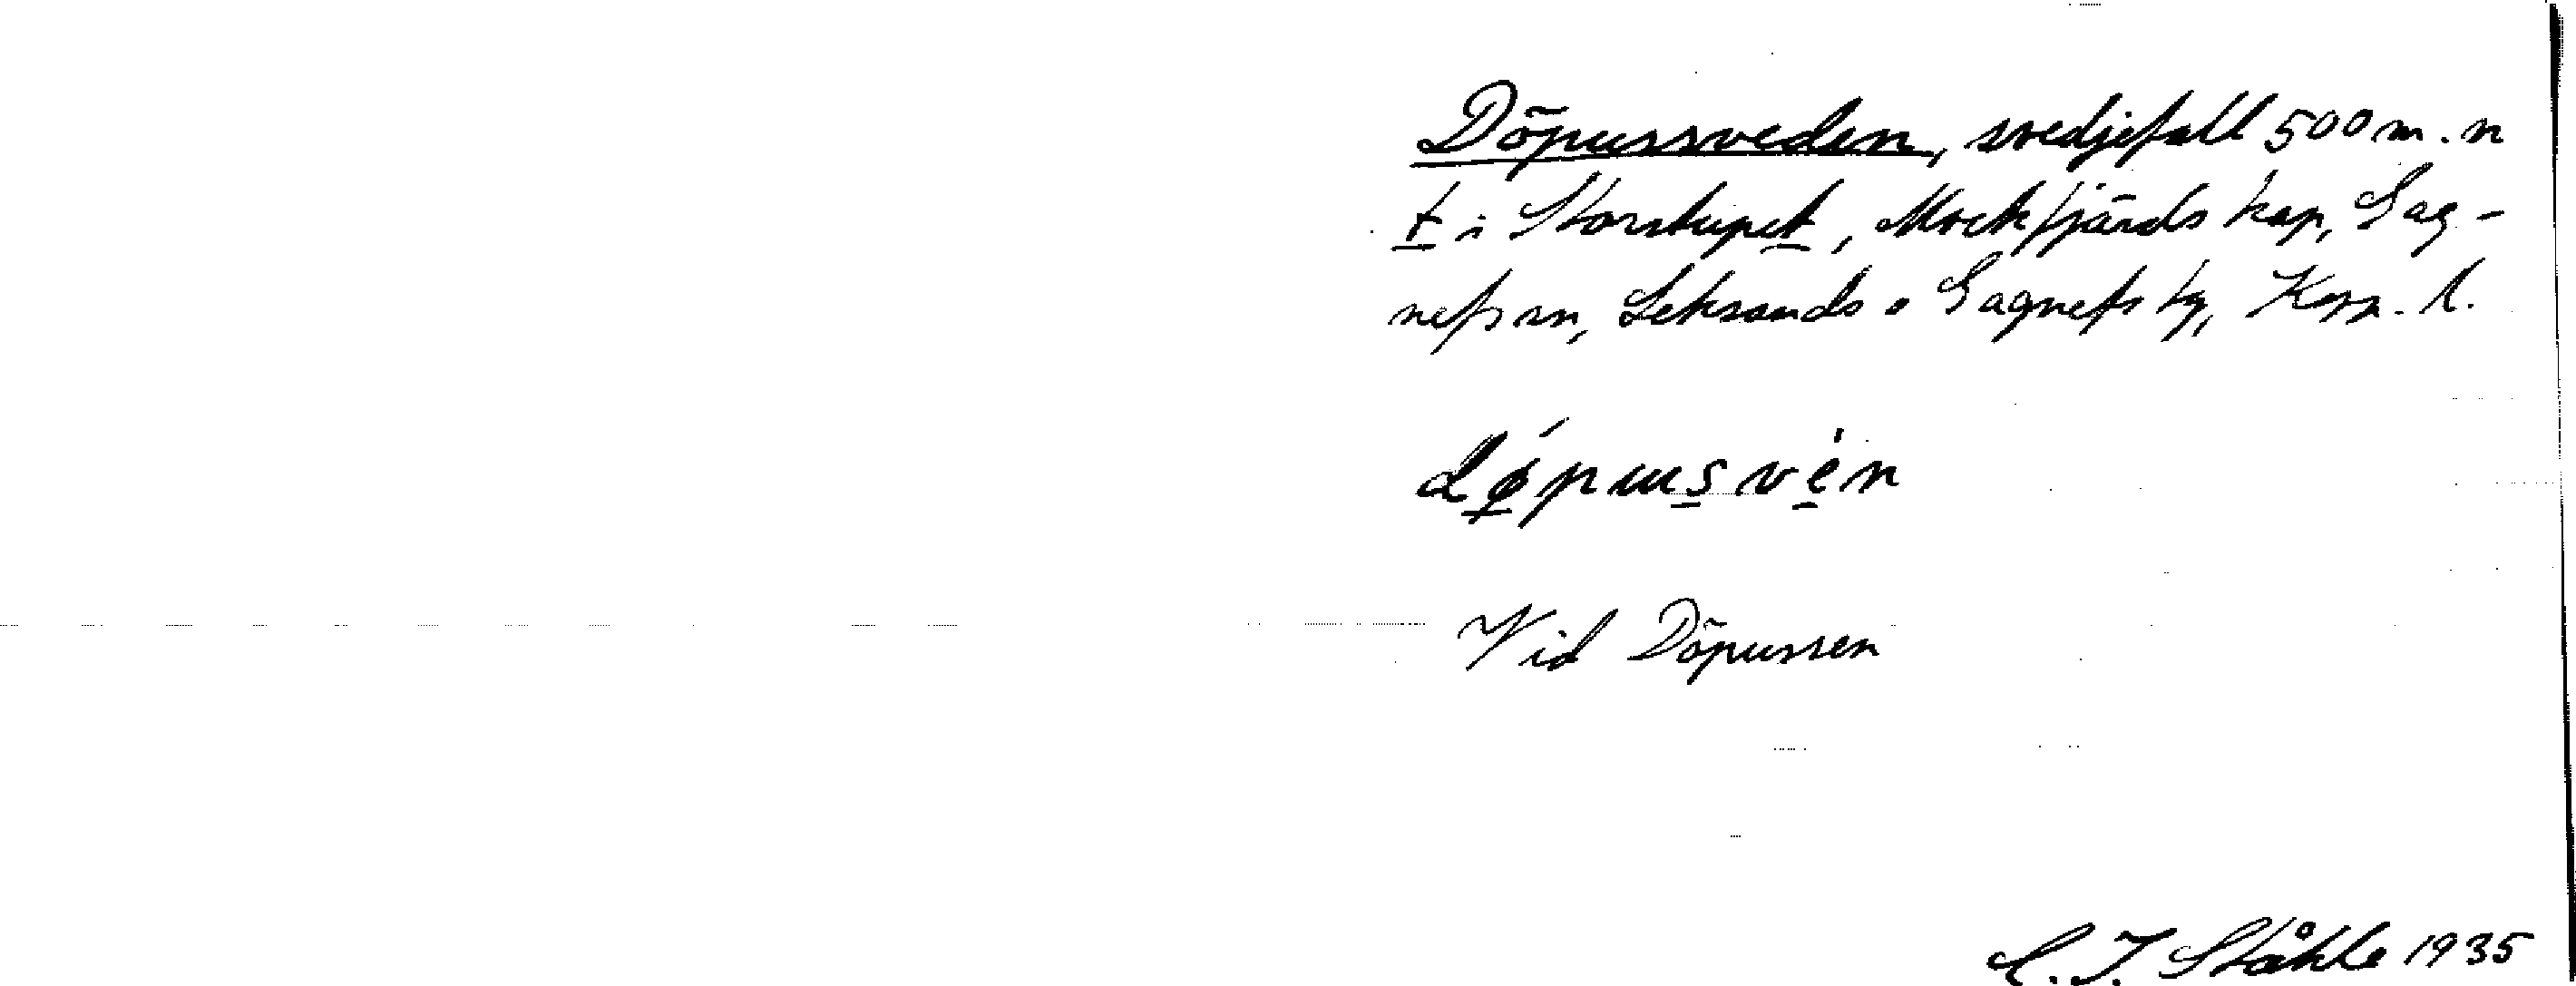 Döpussveden, svedjefall 500 m. n
t i Storstupet, Mockfjärds kap, Gag-
nefs sn, Leksands o Gagnefs tg, Kopp. l.
dø̀pusvèn
Vid Döpussen
C. I. Ståhle 1935